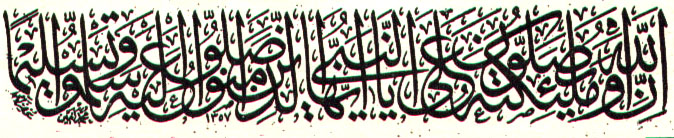 إن الله وملئكته يصلون على النبي يا أيها الذين آمنوا صلوا عليه وسلموا تسليما ١٣٥٧